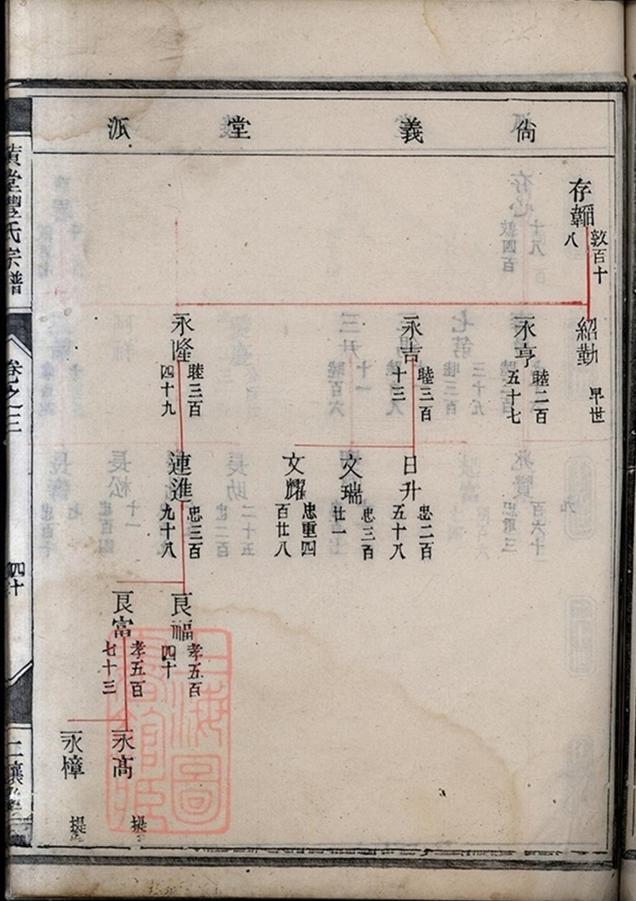 尙義堂派
存
敦百十八
紹勤
早世
永亨
睦二百五十七
永吉
睦三百十三
永隆
睦三百四十九
日升
忠二百五十八
文瑞
忠三百廿一
文耀
忠重四百廿八
連進
忠三百九十八
良福
孝五百四十
良富
孝五百七十三
永高
提
永樟
提
黃堂豐氏宗譜
卷之三
四十